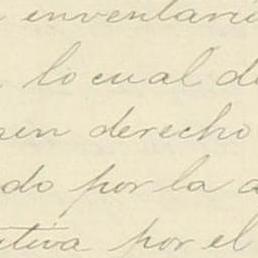 inventari
lo cual d
sin derecho
do por la a
tiva por el